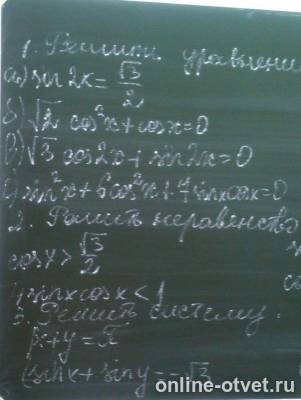 1. Решить уравнени
а) sin 2x = √3/2
б) √2 cos²x + cos x = 0
в) √3 cos2x + sin 2x = 0
г) sin²x + 6cos²x + 7 sinxcosx = 0
2. Решить неравенство
cosx > √3/2
4 sinx cosx < 1
3. Решить систему.
x + y = π
sinx + siny = -√3
online-otvet.ru